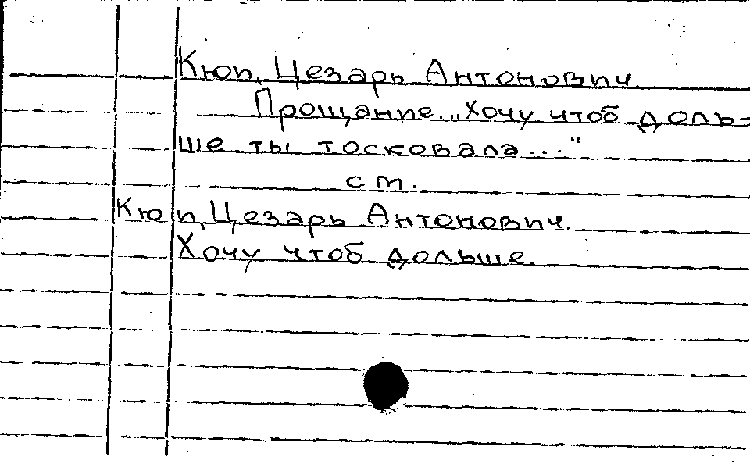 Кюи, Цезарь Антонович
Прощание. „Хочу чтоб доль-
ше ты тосковала..."
ст.
Кюи, Цезарь Антонович.
Хочу чтоб дольше.